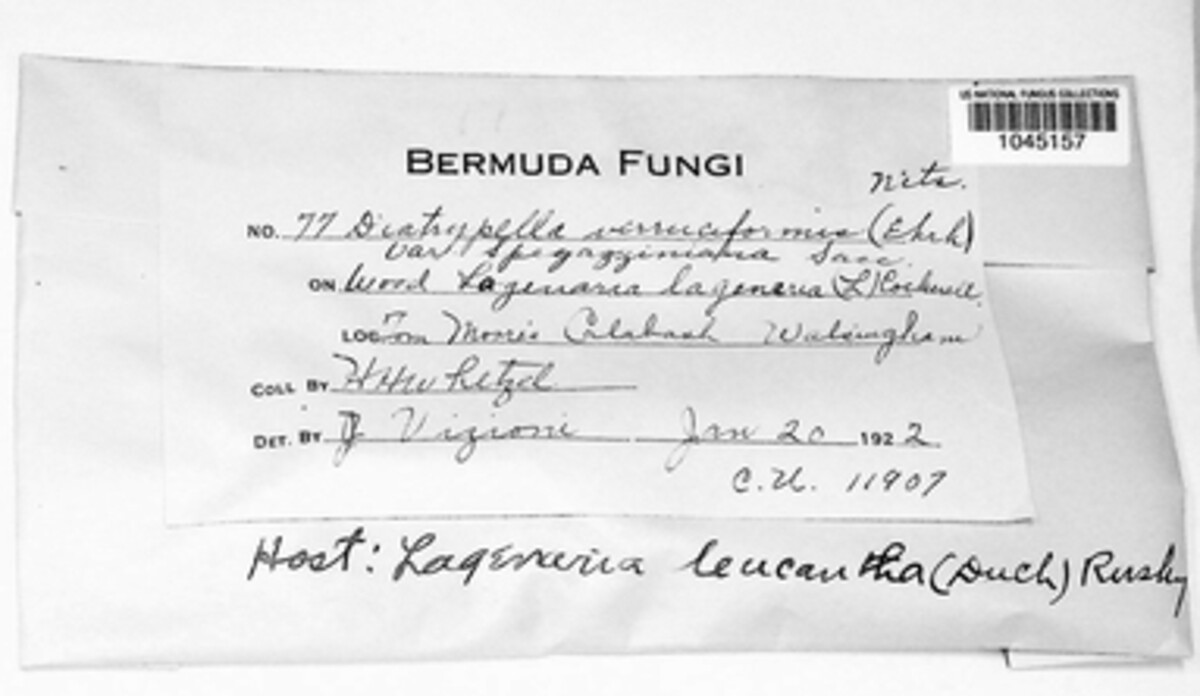 US NATIONAL FUNGUS COLLECTIONS
1045157
BERMUDA FUNGI
Nits.
NO. 77 Diatrypella verruciformis (Ehrh)
var. Spegazziniana Sacc.
ON Wood Lagenaria lageneria (L) Cockerell.
LOC Tom Morris Calabash Walsingham
COLL BY HHWhetzel
DET. BY Vizioni Jan 20 1922.
C.U. 11907
Host: Lagenaria leucantha (Duch) Rusby